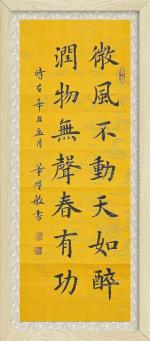 微風不動天如醉
潤物無聲春有功
時在辛丑五月 董學敏書